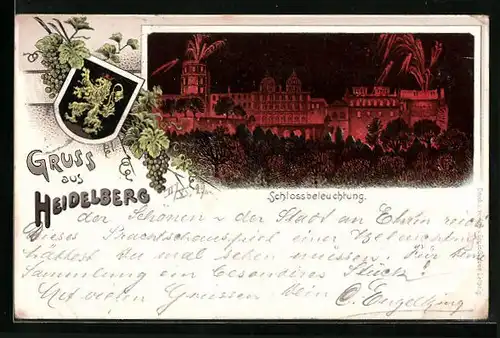 Gruss
aus
Heidelberg
Schlossbeleuchtung.
der Schönen & der Stadt an Ehren reich
Dieses Prachtschauspiel einer Beleuchtung
hättest du mal sehen müssen. Für deine
Sammlung ein besonderes Stück!
Mit vielen Grüssen Dein C. Engelking